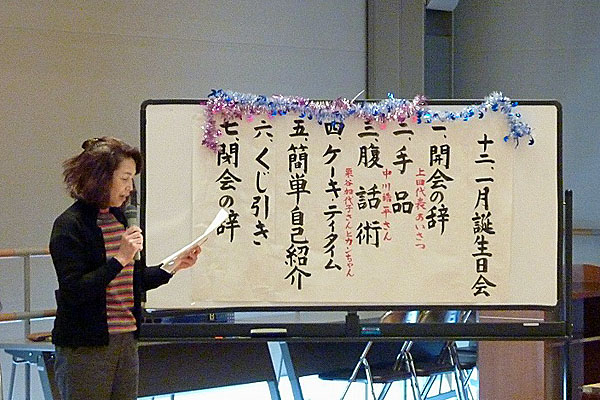 十二、一月誕生日会
一、開会の辞
上田代表あいさつ
二、手品
中川晧平さん
三、腹話術
粟谷加代子さんとカンちゃん
四、ケーキ、ティタイム
五、簡単自己紹介
六、くじ引き
七、閉会の辞